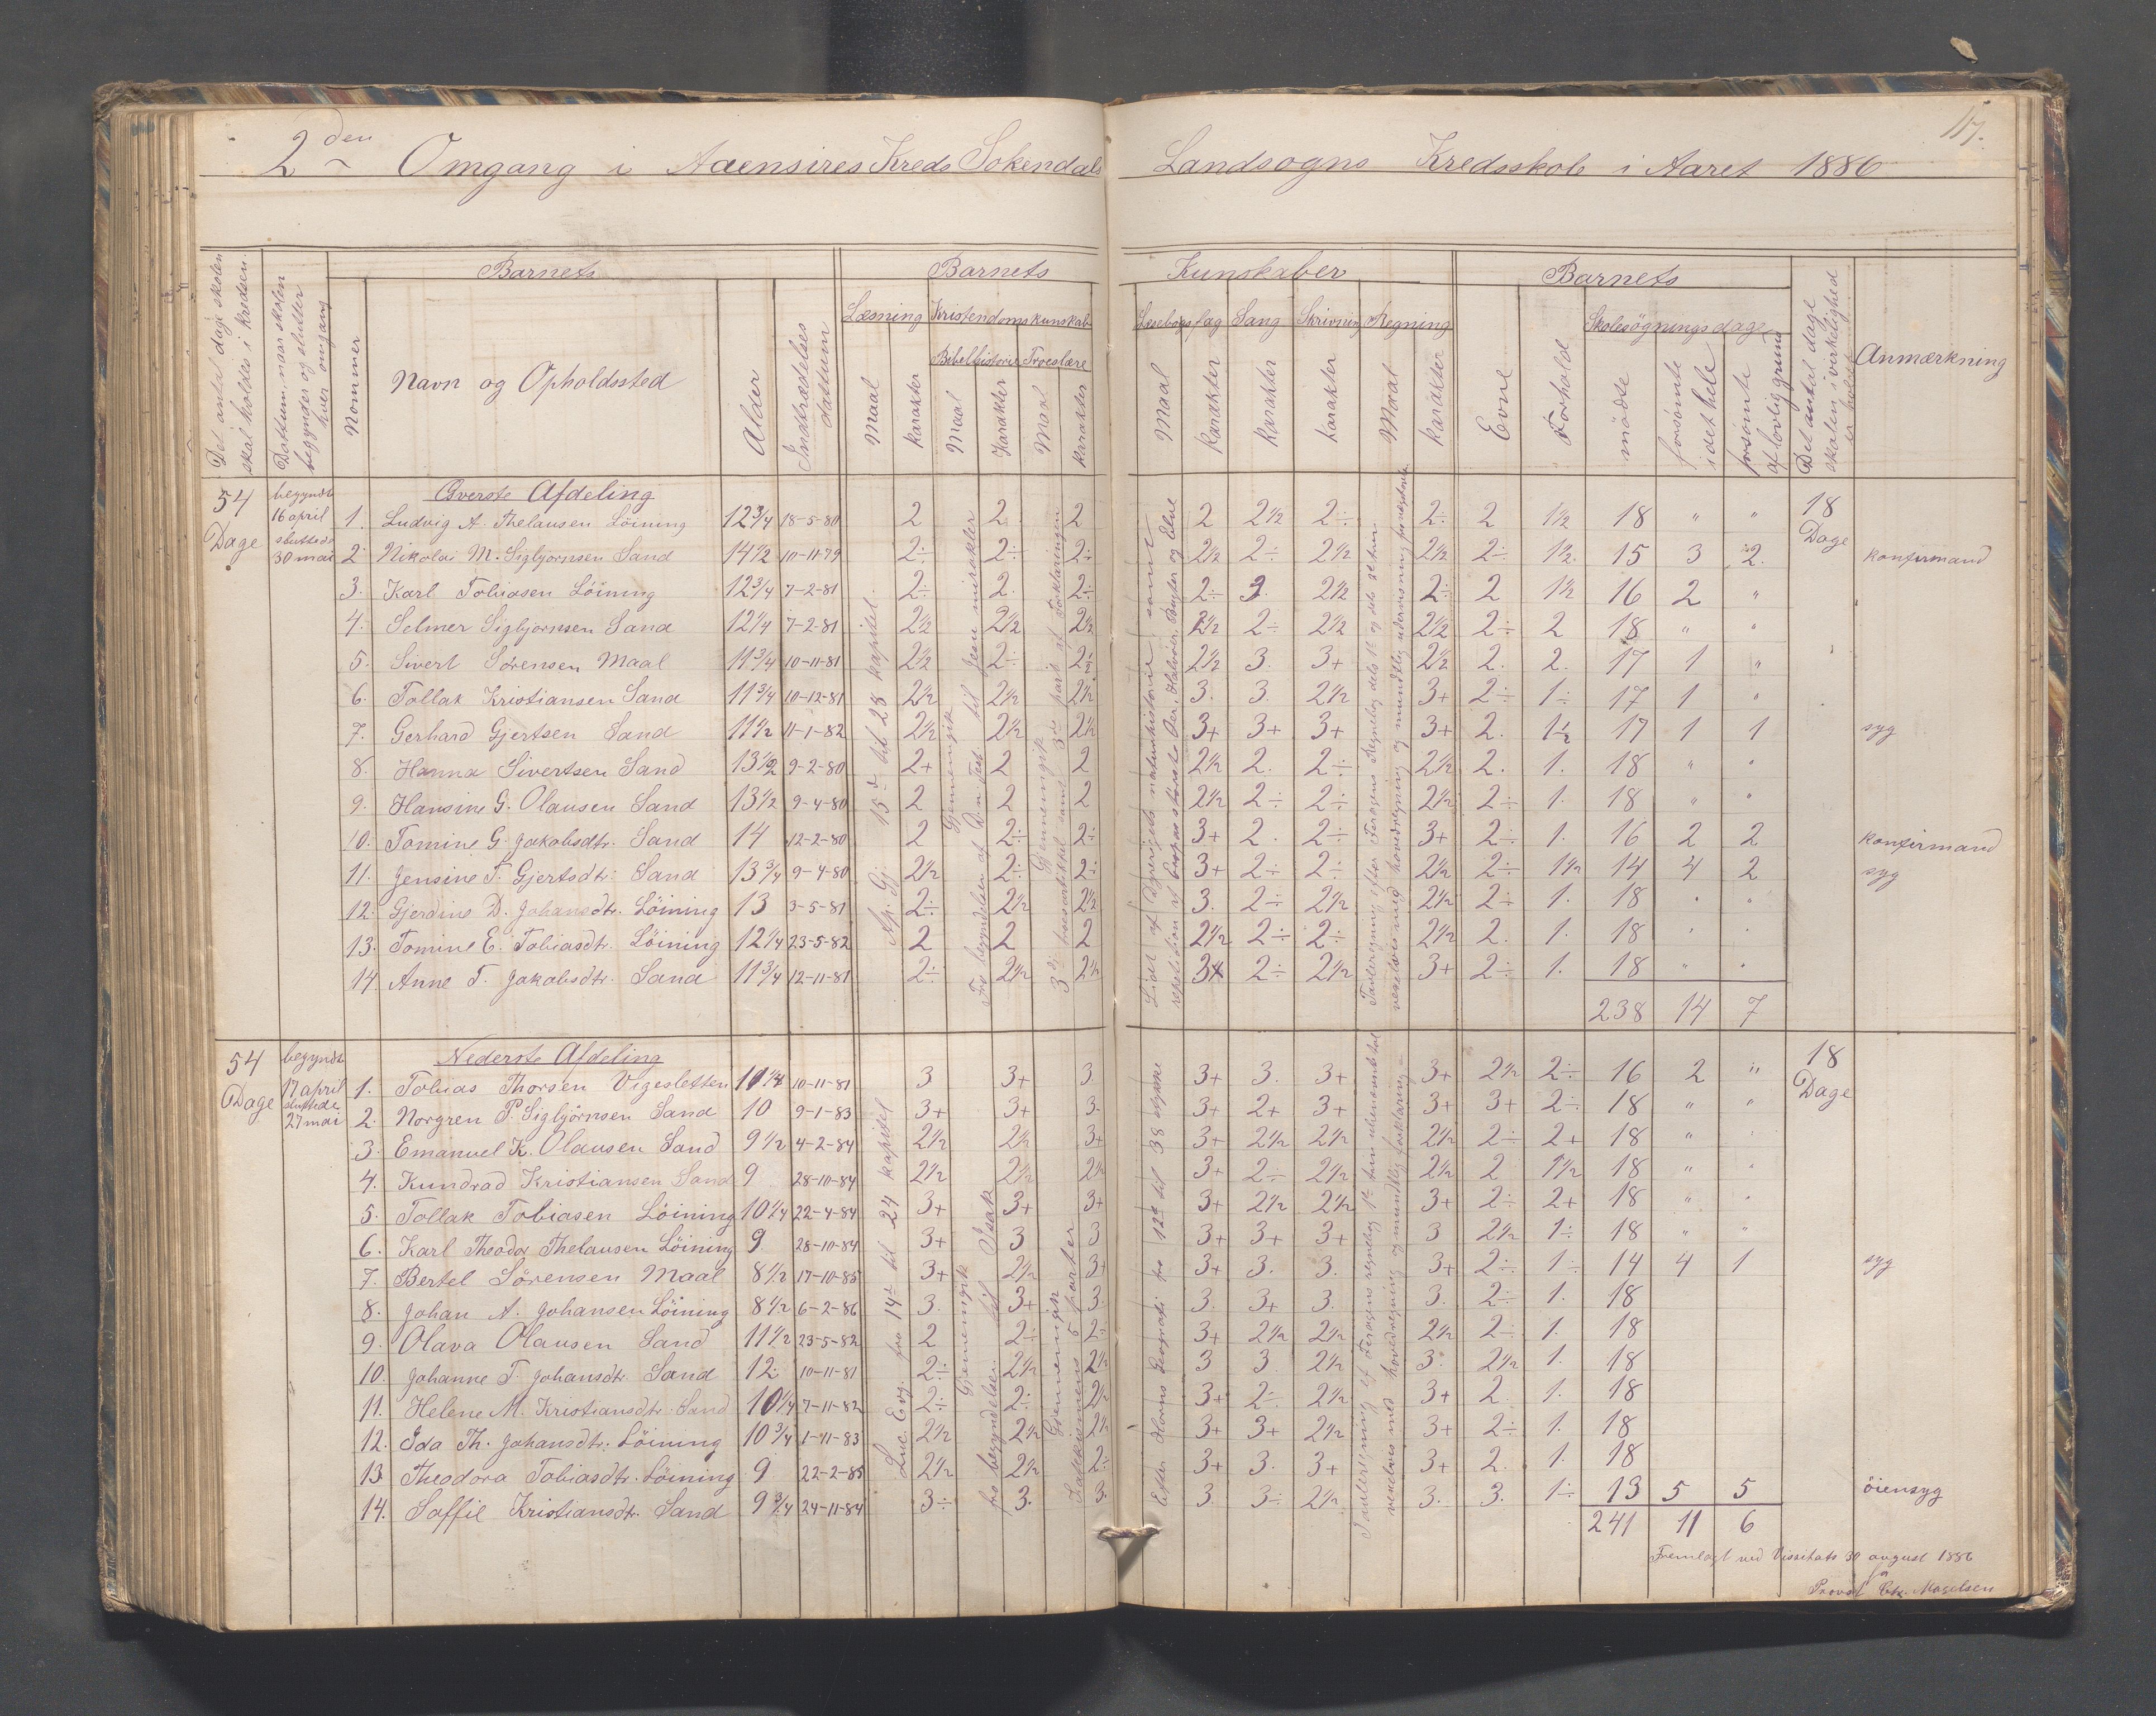 117.
2den Omgang i Aaensires Kreds Sokendals Landsogns Kredsskole i Aaret 1886
Det antal dage skolen skal holdes i kredsen.
Dattum, naar skolen begynder og slutter hver omgang
Nommer
Barnets
Navn og Opholdssted
Alder
Indtrædelses dattum
Barnets Kunskaber
Læsning
Maal
karakter
Kristendomskunskab
Bibelhistorie
Maal
Karakter
Troeslære
Maal
karakter
Læsebogsfag
Maal
karakter
Sang
karakter
Skrivning
karakter
Regning
Maal
karakter
Barnets
Evne
Forhold
Skolesøgningsdage
møde
forsømte i det hele
forsømte af lovlig grund
Det antal dage skolen i virkelighed er holdt
Anmærkning
54 Dage
begyndte 16 april sluttede 30 mai
Øverste Afdeling
18 Dage
1. Ludvig A. Thelausen Löining 12 3/4 18-5-80 2 2 2 2 2½ 2÷ 2÷ 2 1½ 18 " "
2. Nikolai M. Sigbjørnsen Sand 14½ 10-11-79 2÷ 2÷ 2÷ 2½ 2÷ 2½ 2½ 2÷ 1½ 15 3 2. konfirmand
3. Karl Tobiasen Löining 12 3/4 7-2-81 2÷ 2. 2÷ 2÷ 2. 2½ 2÷ 2 1½ 16 2 "
4. Selmer Sigbjørnsen Sand 12 1/4 7-2-81 2½ 2½ 2½ 2½ 2÷ 2½ 2½ 2÷ 2 18 " "
5. Sivert Sørensen Maal 11 3/4 10-11-81 2½ 2÷ 2½ 2½ 3. 3+ 2½ 2. 2. 17 1 "
6. Tollak Kristiansen Sand 11 3/4 10-12-81 2½ 2½ 2½ 3. 3. 2½ 3+ 2÷ 1÷ 17 1 "
7. Gerhard Gjertsen Sand 11½ 11-1-82 2½ 2½ 2½ 3+ 3+ 3+ 3+ 2. 1½ 17 1 1 syg
8. Hanna Sivertsen Sand 13½ 9-2-80 2+ 2 2 2½ 2. 2÷ 2½ 2. 1. 18 " "
9. Hansine G. Olausen Sand 13½ 9-4-80 2 2 2 2½ 2÷ 2÷ 2½ 2÷ 1. 18 " "
10. Tomine G. Jakobsdtr. Sand 14 12-2-80 2 2÷ 2÷ 3+ 2. 2÷ 3+ 2÷ 1. 16 2 2 konfirmand
11. Jensine T. Gjertsdtr. Sand 13 3/4 9-4-80 2½ 2÷ 2÷ 3+ 2÷ 2÷ 2½ 2÷ 1½ 14 4 2 syg
12. Gjerdine D. Johansdtr. Löining 13 3-5-81 2÷ 2½ 2½ 3. 2÷ 2½ 2½ 2÷ 1. 18 " "
13. Tomine E. Tobiasdtr. Löining 12 1/4 23-5-82 2 2 2 2½ 2÷ 2÷ 2½ 2. 1. 18 " "
14 Anne T. Jakobsdtr. Sand 11 3/4 12-11-81 2÷ 2½ 2½ 3+ 2÷ 2½ 3+ 2÷ 1. 18 " "
238 14 7
Ap. Gj. 15d til 28 kapitel.
Gjennemgik
Fra begyndelsen af D.n. Test. til Jesu mirakler
Gjennemgik
3die troesartikel samt 3die part af Forklaringen
Lidt af Dyrerigets naturhistorie samt repetition af Europas største Öer, Halvöer, Bugter og Elve
54 Dage
begyndte 17 april sluttede 27 mai
Nederste Afdeling
18 Dage
1. Tobias Thorsen Vigesletten 11 1/4 10-11-81 3 3+ 3. 3+ 3. 3+ 3+ 2½ 2÷ 16 2 "
2. Norgren P. Sigbjörnsen Sand 10 9-1-83 3+ 3+ 3. 3+ 2+ 3+ 3+ 3+ 2÷ 18 " "
3. Emanuel K. Olausen Sand 9½ 4-2-84 2½ 2½ 3+ 3+ 2½ 2½ 2½ 2÷ 2+ 18 " "
4. Kundrad Kristiansen Sand 9 28-10-84 2½ 2½ 2½ 3+ 2÷ 2½ 2½ 2 1½ 18 " "
5. Tollak Tobiasen Löining 10 1/4 22-4-84 3+ 3+ 3+ 3+ 2½ 2½ 3+ 2÷ 2+ 18 " "
6. Karl Theodor Thelausen Löining 9 28-10-84 3+ 3 3 3+ 3+ 3+ 3 2½ 1÷ 18 " "
7. Bertel Sörensen Maal 8½ 17-10-85 3+ 2½ 3+ 3+ 3. 3. 3+ 2÷ 1÷ 14 4 1 syg
8. Johan A. Johansen Löining 8½ 6-2-86 3. 3+ 3. 3. 3+ 3. 3. 2÷ 1. 18
9. Olava Olausen Sand 11½ 23-5-82 2 2÷ 2÷ 3+ 2½ 2½ 2½ 2÷ 1. 18
10. Johanne T. Johansdtr. Sand 12 10-11-81 2÷ 2½ 2½ 3 3. 2½ 3. 2½ 1. 18
11. Helene M. Kristiansdtr. Sand 10 1/4 7-11-82 2÷ 2÷ 2½ 3+ 2÷ 2½ 3+ 2. 1. 18
12. Ida Th. Johansdtr. Löining 10 3/4 1-11-83 2½ 2½ 2½ 3+ 3+ 2½ 3+ 2÷ 1. 18
13. Theodora Tobiasdtr. Löining 9 22-2-85 2½ 2½ 2÷ 3+ 3. 3+ 3+ 2. 1. 18
14. Saffie Kristiansdtr. Sand 9 3/4 24-11-84 3÷ 3. 3. 3. 3÷ 2½ 3. 3. 1÷ 13 5 5 öiensyg
241 11 6
Luc. Evg. fra 14de til 24 kapitel
Gjennemgik
fra begyndelsen til Isak
Gjennemgik
Katekismens 5 parter
Efter Horns Geografi fra 12te til 38 stykke
Fremlagt ved Vissitats 30 august 1886
Provst Maselsen